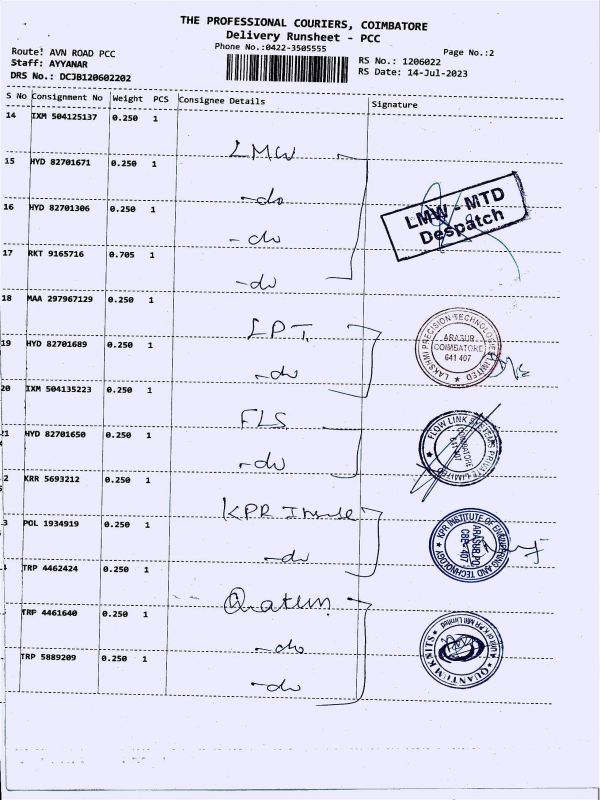 THE PROFESSIONAL COURIERS, COIMBATORE
Delivery Runsheet - PCC
Phone No.:0422-3505555
Page No.:2
Route: AVN ROAD PCC
Staff: AYYANAR
DRS No.: DCJB120602202
RS No.: 1206022
RS Date: 14-Jul-2023
S No Consignment No Weight PCS Consignee Details Signature
14 IXM 504125137 0.250 1
LMW
15 HYD 82701671 0.250 1
-do
16 HYD 82701306 0.250 1
-do
LMW - MTD
Despatch
17 RKT 9165716 0.705 1
-do
18 MAA 297967129 0.250 1
LPT
19 HYD 82701689 0.250 1
-do
LAKSHMI PRECISION TECHNOLOGIES LIMITED
ARASUR
COIMBATORE
641 407
20 IXM 504135223 0.250 1
FLS
21 HYD 82701650 0.250 1
-do
FLOW LINK SYSTEMS PRIVATE LIMITED
COIMBATORE
641 407
2 KRR 5693212 0.250 1
KPR
3 POL 1934919 0.250 1
-do
KPR INSTITUTE OF ENGINEERING AND TECHNOLOGY
ARASUR PO
CBE - 407
TRP 4462424 0.250 1
TRP 4461640 0.250 1
-do
TRP 5889209 0.250 1
-do
QUANTUM KNITS
A Unit of K.P.R Mill Limited